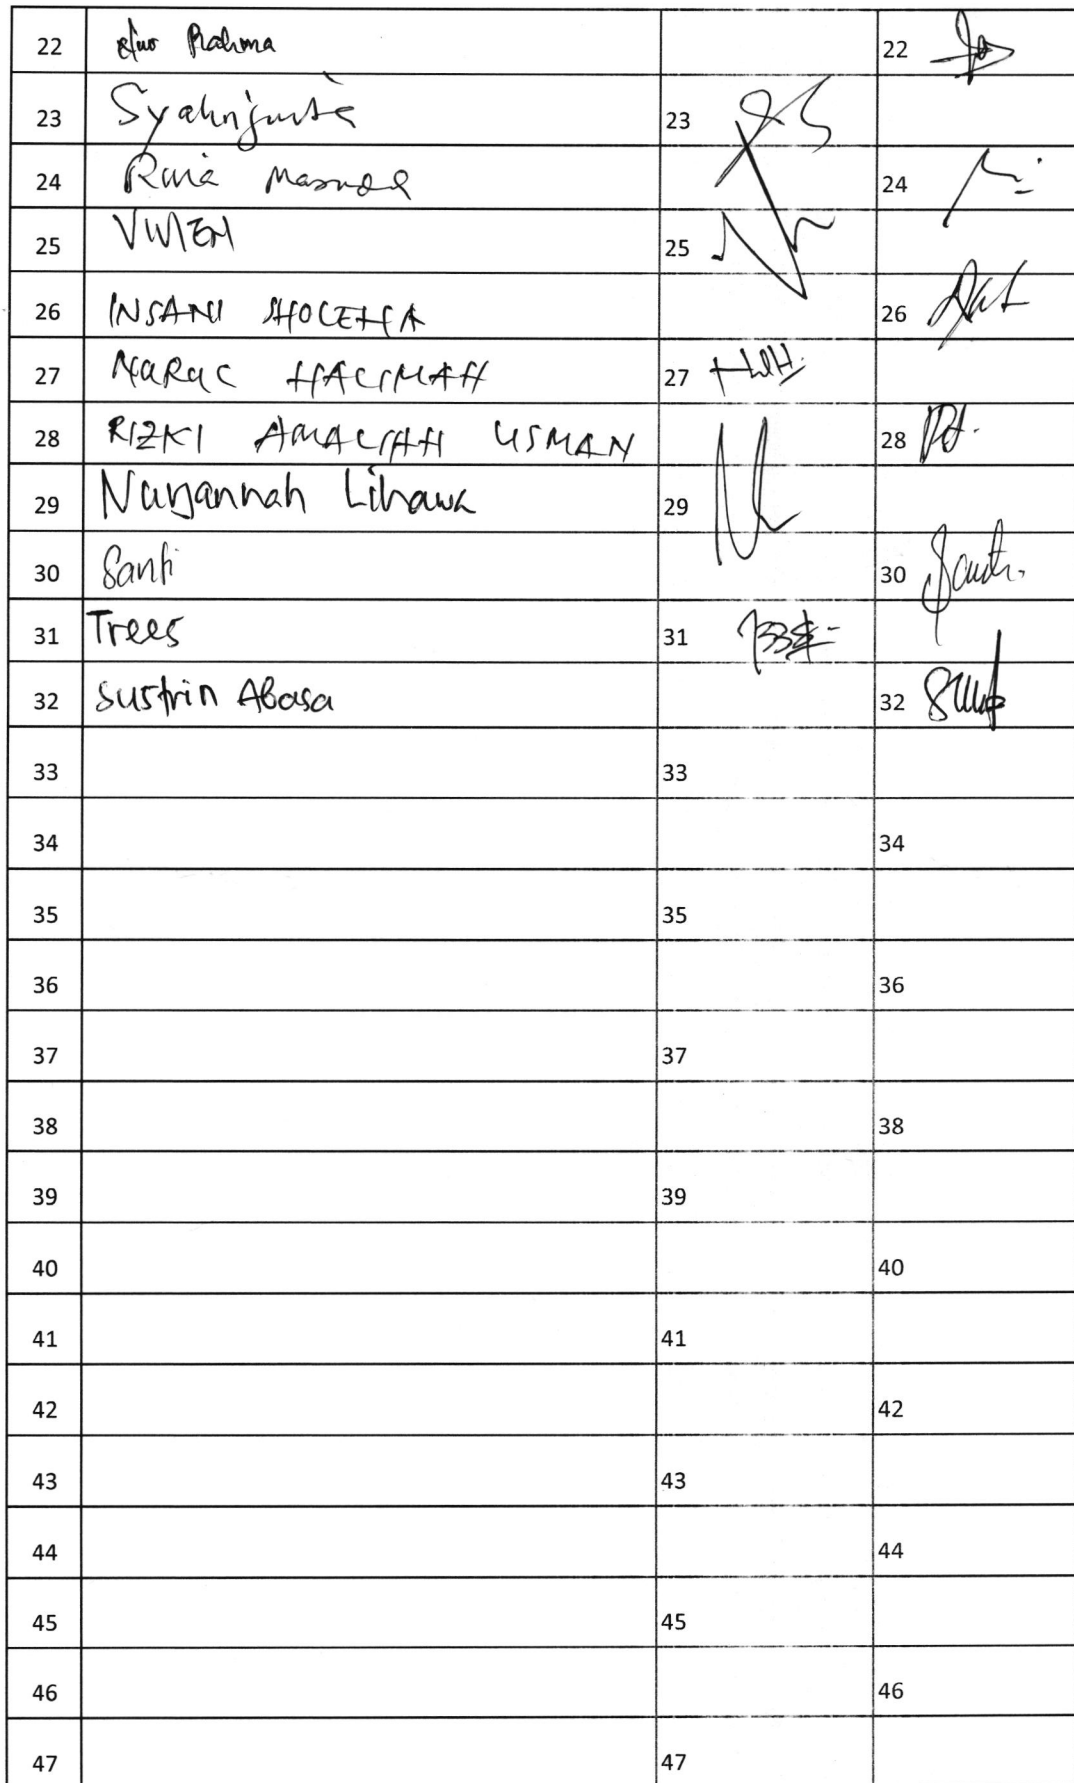 22 Rahma 22
23 23
24 24
25 VIVIEN 25
26 INSANI SHOLEHA 26
27 NURUL HALIMAH 27
28 RIZKI AMALIAH USMAN 28
29 Nurjannah Lihawa 29
30 Santi 30
31 Trees 31
32 Sustrin Abasa 32
33 33
34 34
35 35
36 36
37 37
38 38
39 39
40 40
41 41
42 42
43 43
44 44
45 45
46 46
47 47